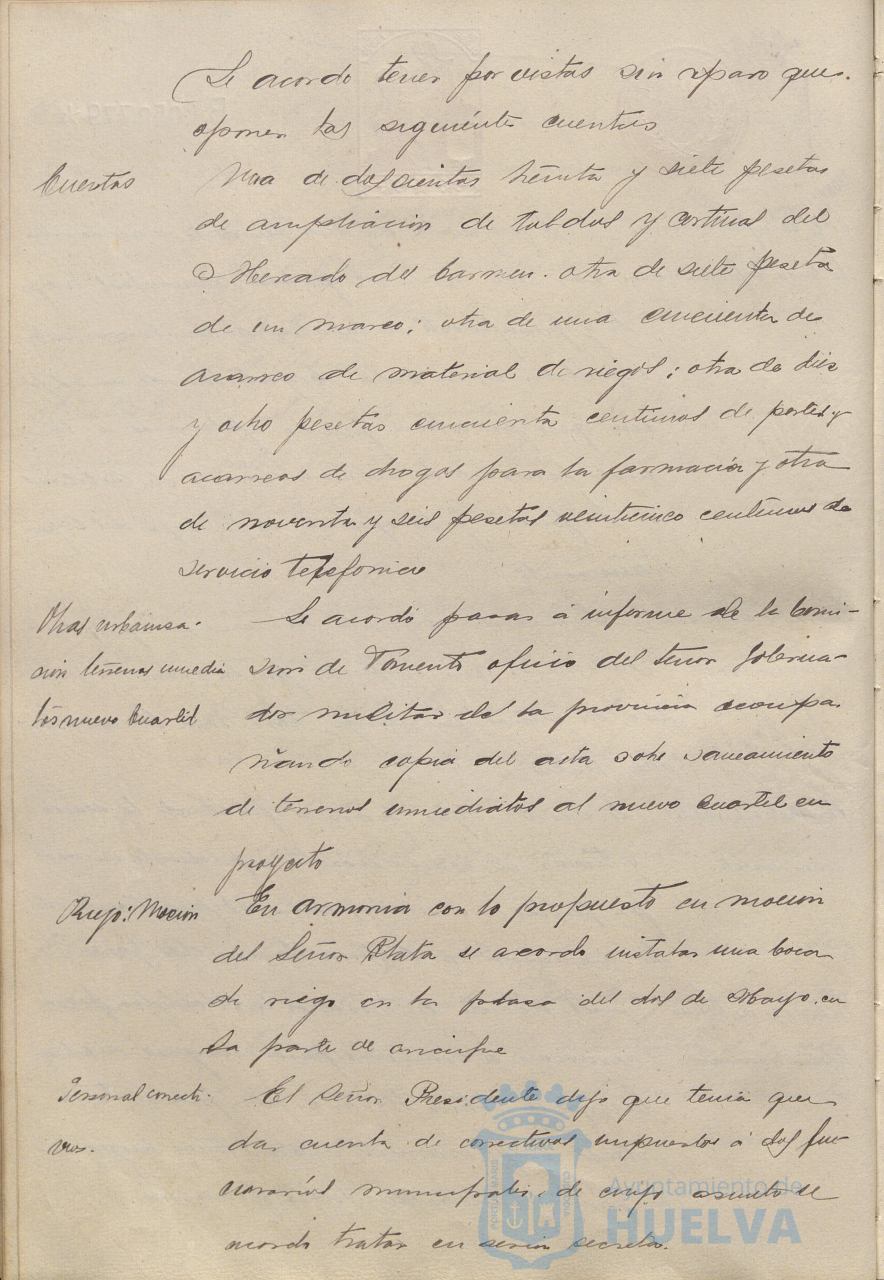 Se acordo tener por vistas sin reparo que
oponer las siguientes cuentas
Cuentas
Una de doscientas treinta y siete pesetas
de ampliacion de toldos y cortinas del
Mercado del Carmen. otra de siete pesetas
de un marco; otra de una cincuenta de
acarreo de material de riegos; otra de diez
y ocho pesetas cincuenta centimos de portes y
acarreos de drogas para la farmacia y otra
de noventa y seis pesetas veinticinco centimos de
servicio telefonico
Obras urbaniza-
sion terrenos inmedia
tos nuevo Cuartel
Se acordó pasar á informe de la Comi-
sion de Fomento oficio del señor Goberna-
dor militar de la provincia acompa
ñando copia del acta sobre saneamiento
de terrenos inmediatos al nuevo cuartel en
proyecto
Riego: Mocion
En armonia con lo propuesto en mocion
del Señor Plata se acordo instalar una boca
de riego en la plaza del dos de Mayo en
la parte de
Personal correcti-
vos.
El Señor Presidente dijo que tenia que
dar cuenta de correctivos impuestos á dos fun
cionarios municipales, de cuyo asunto se
acordo tratar en sesion secreta.
Ayuntamiento de
HUELVA